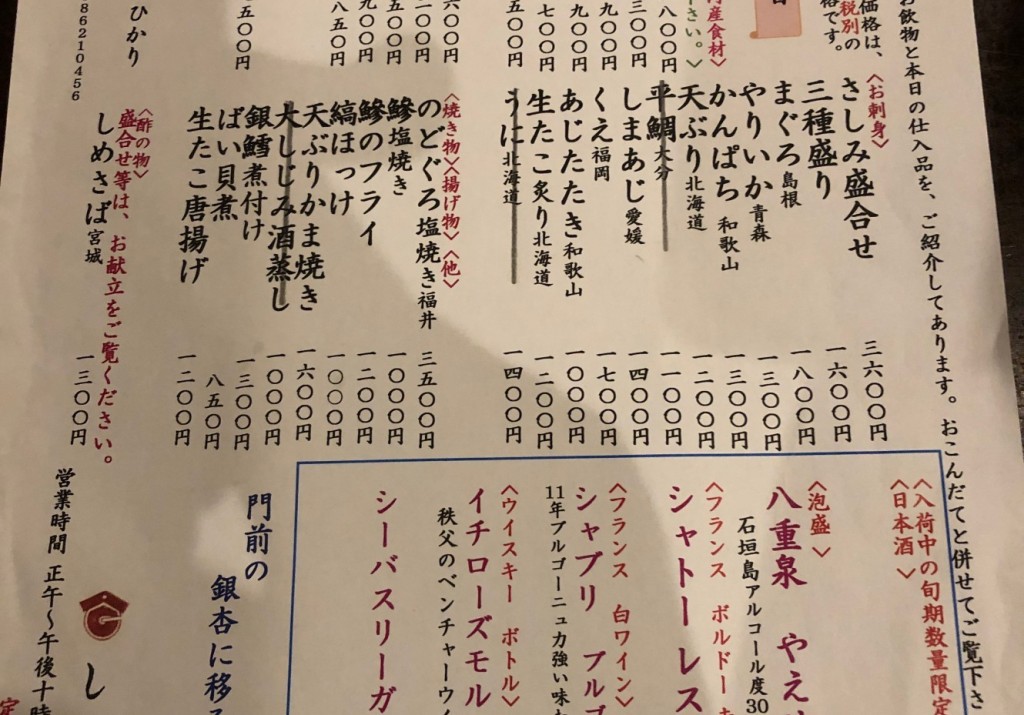 お飲物と本日の仕入品を、ご紹介してあります。おこんだてと併せてご覧下さ
価格は、
税別の
格です。
月産食材〉
さい。〉
八〇〇円
三〇〇円
九〇〇円
九〇〇円
七〇〇円
五〇〇円
六〇〇円
二〇〇円
五〇〇円
九〇〇円
八五〇円
五〇〇円
ひかり
86210456
〈お刺身〉
さしみ盛合せ 三六〇〇円
三種盛り 一六〇〇円
まぐろ 島根 一八〇〇円
やりいか 青森 一三〇〇円
かんぱち 和歌山 一三〇〇円
天ぶり 北海道 一二〇〇円
平鯛 大分 一七〇〇円
しまあじ 愛媛 一四〇〇円
くえ 福岡 一七〇〇円
あじたたき 和歌山 一〇〇〇円
生たこ炙り 北海道 一二〇〇円
うに 北海道 一四〇〇円
〈焼き物〉〈揚げ物〉〈他〉
のどぐろ塩焼き 福井 三五〇〇円
鯵塩焼き 一〇〇〇円
鯵のフライ 一二〇〇円
縞ほっけ 一〇〇〇円
天ぶりかま焼き 一六〇〇円
大しじみ酒蒸し 一〇〇〇円
銀鱈煮付け 一三〇〇円
ばい貝煮 八五〇円
生たこ唐揚げ 一二〇〇円
〈酢の物〉
盛合せ等は、お献立をご覧ください。
しめさば 宮城 一三〇〇円
〈入荷中の旬期数量限定
〈日本酒〉
〈泡盛〉
八重泉 やえ
石垣島アルコール度30
〈フランス ボルドー
シャトーレス
〈フランス 白ワイン〉
シャブリ ブル
11年ブルゴーニュ力強い味
〈ウイスキー ボトル〉
イチローズモル
秩父のベンチャーウ
シーバスリーガ
門前の
銀杏に移
営業時間 正午〜午後十時
し
定